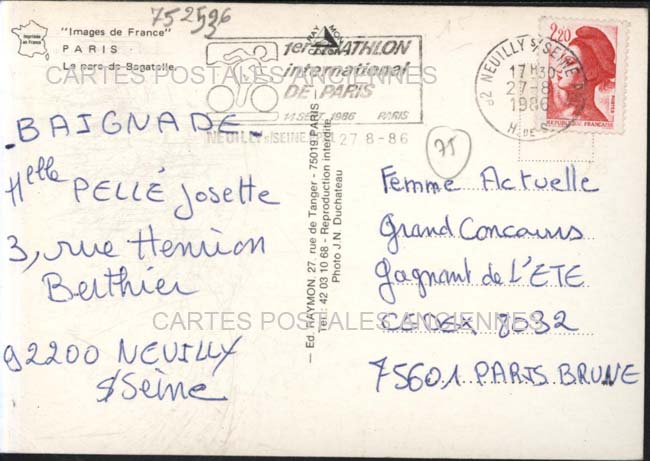 752526
Imprimée en France
"Images de France"
PARIS
Le parc de Bagatelle
CARTES POSTALES ANCIENNES
1er TRIATHLON
international
DE PARIS
14 SEPT. 1986 PARIS
NEUILLY s/SEINE 27 8-86
92 NEUILLY S/ SEINE
17H30
27-8
1986
Hts DE S
2,20
REPUBLIQUE FRANCAISE
POSTES
RAYMON
75
- BAIGNADE -
Melle PELLÉ Josette
3, rue Henrion
Berthier
92200 NEUILLY
s/Seine
— Ed. RAYMON, 27, rue de Tanger - 75019 PARIS —
Tél.: 42 03 10 68 - Reproduction interdite
Photo J.N. Duchateau
Femme Actuelle
Grand Concours
Gagnant de L'ETE
CEDEX 8532
75601 PARIS BRUNE
CARTES POSTALES ANCIENNES